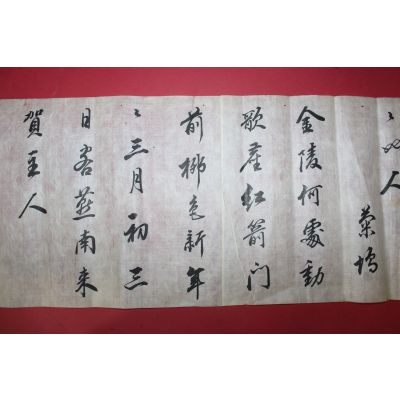 人
塢
金陵何處動
歌塵紅箭門
前柳色新年
〻三月初三
日客燕南来
賀主人